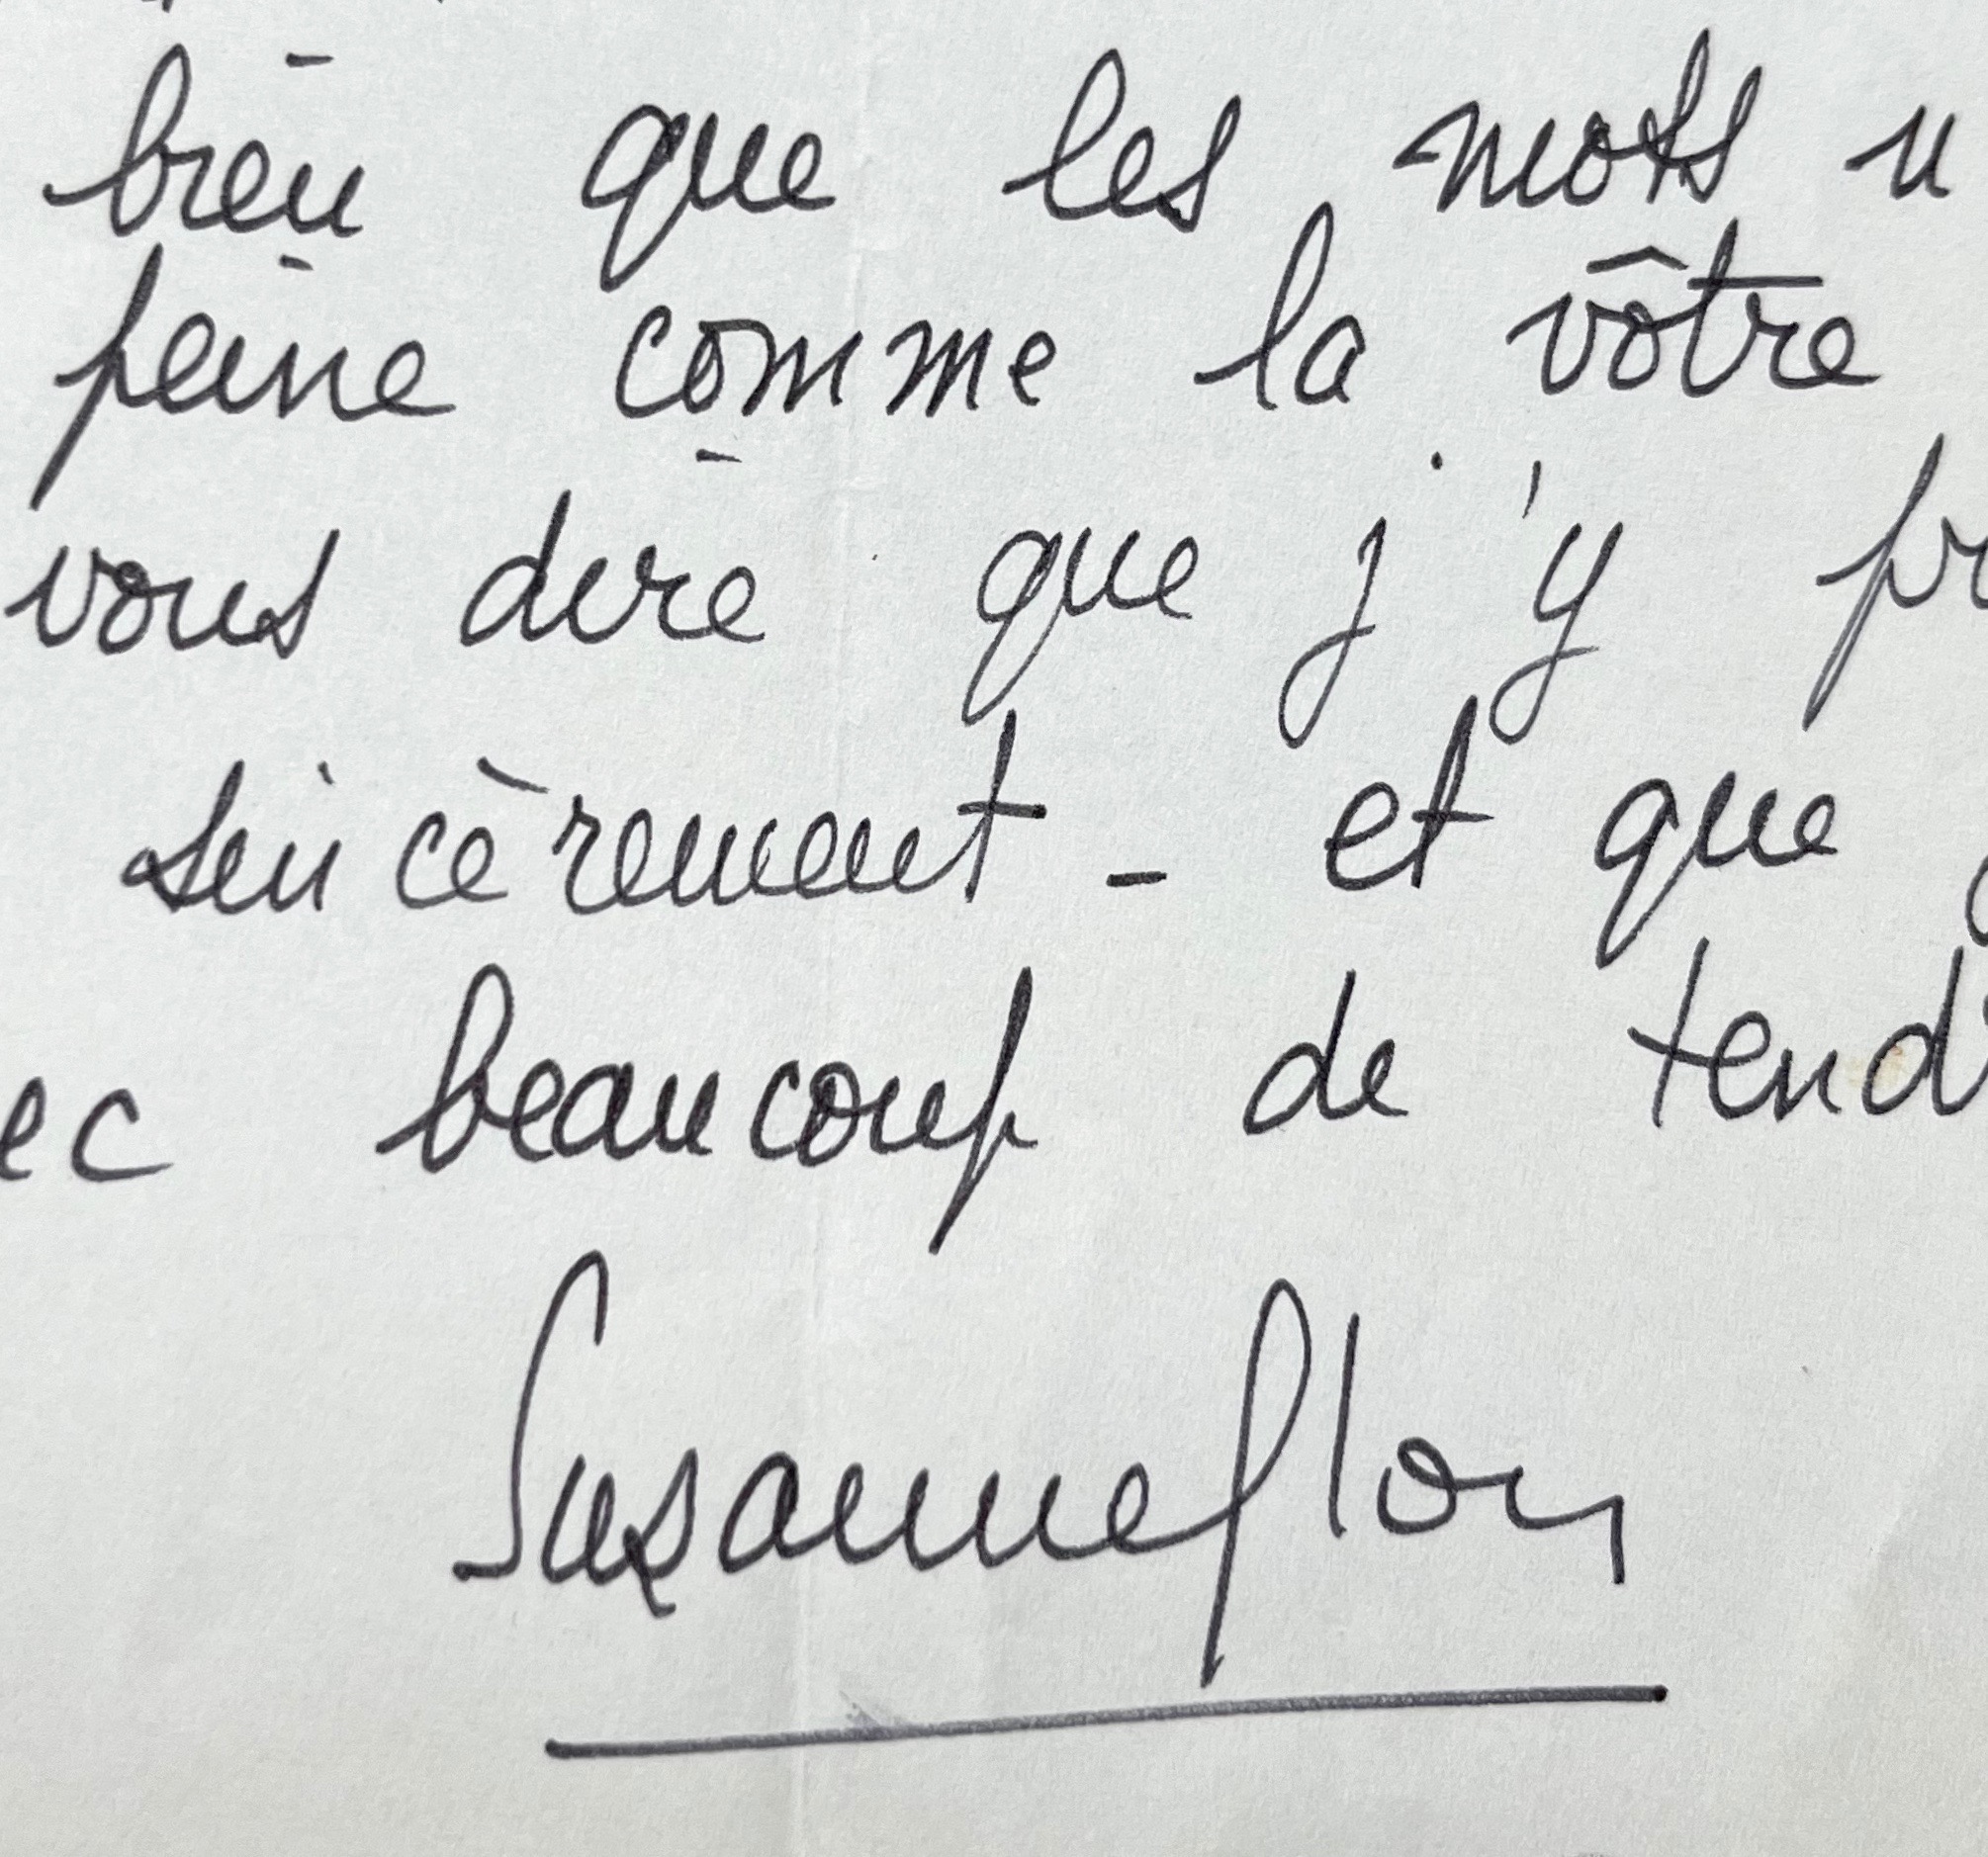 bien que les mots n
peine comme la vôtre
vous dire que j'y pr
sincèrement - et que
ec beaucoup de tend
Suzanne flon